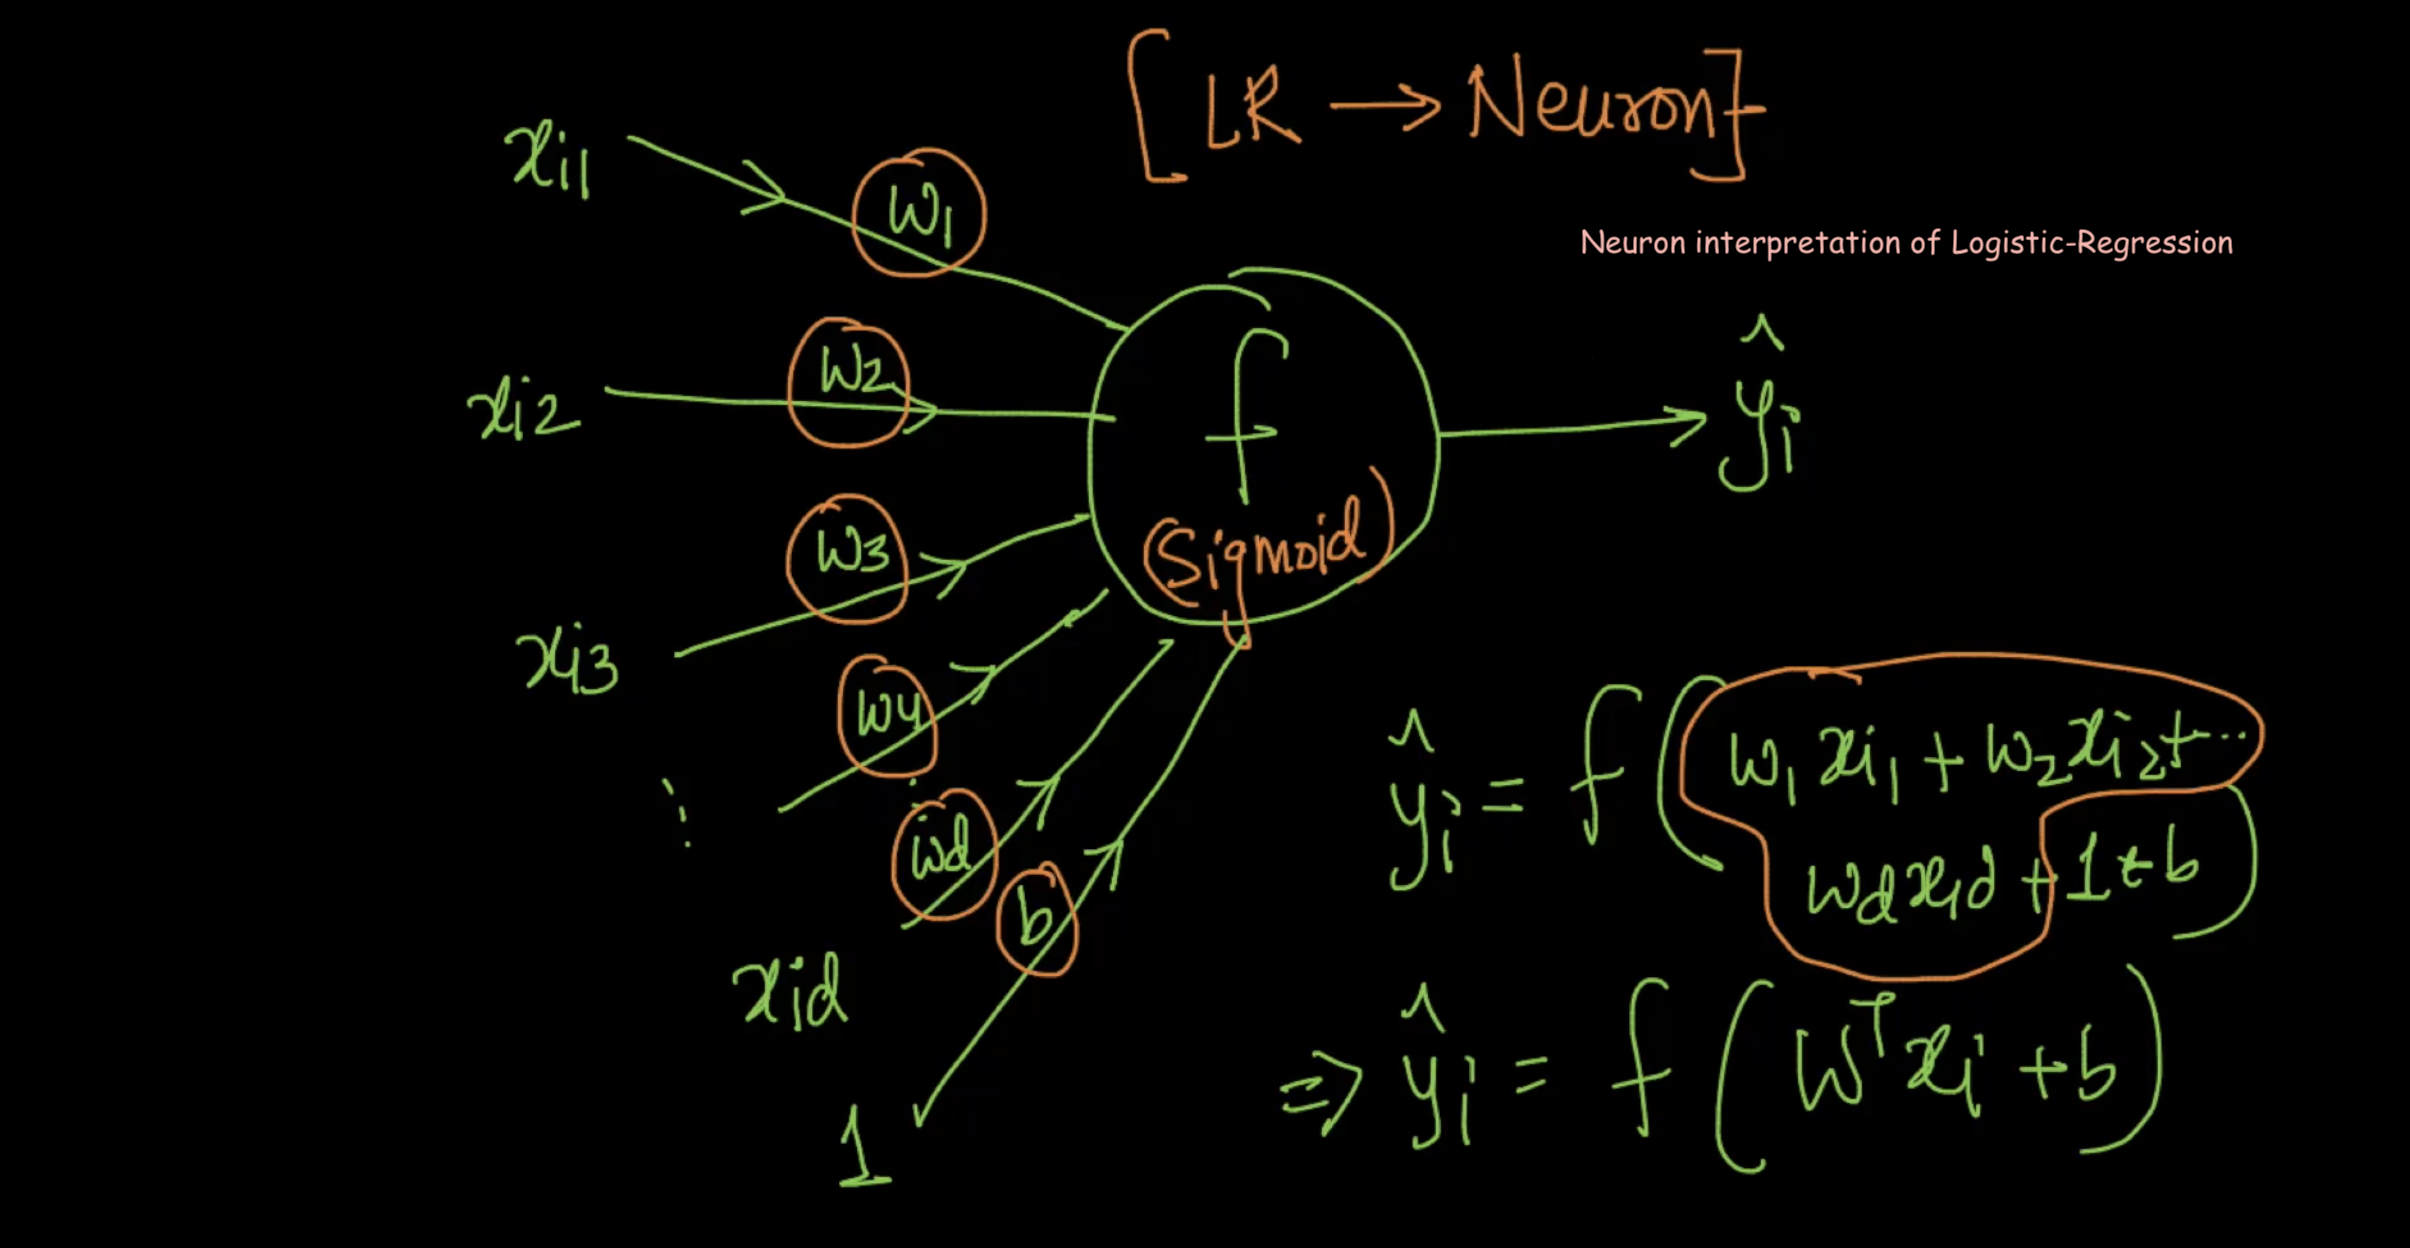 [LR → Neuron]
Neuron interpretation of Logistic-Regression
xi1
w1
xi2
w2
f
ŷi
w3
(Sigmoid)
xi3
w4
⋮
wd
b
xid
1
ŷi = f(w1 xi1 + w2 xi2 + ...
wd xid + 1 * b)
⇒ ŷi = f(Wᵀxi + b)